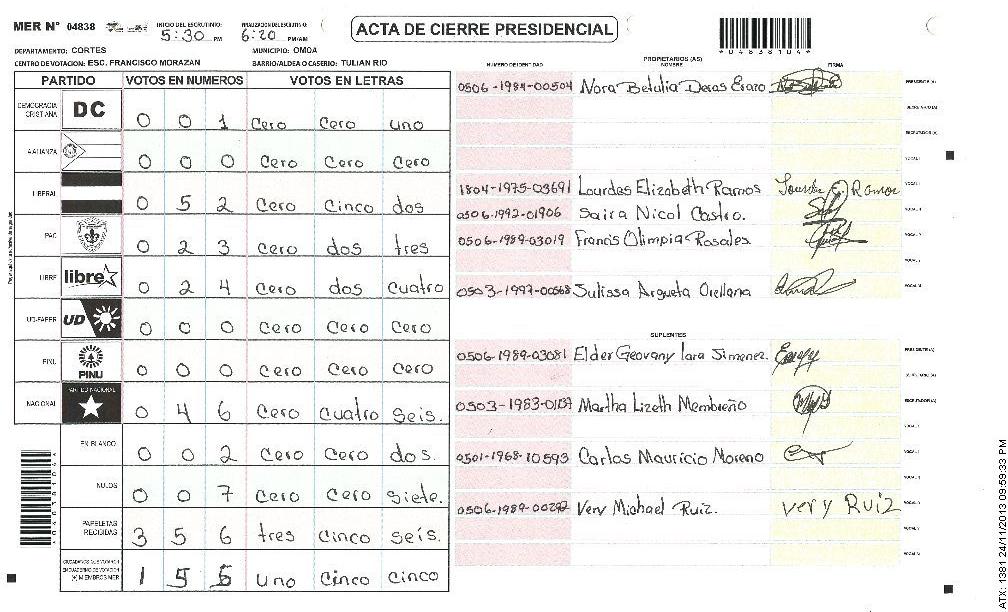 MER N° 04838
INICIO DEL ESCRUTINIO: 5:30 PM
FINALIZACION DEL ESCRUTINIO: 6:20 PM/AM
ACTA DE CIERRE PRESIDENCIAL
DEPARTAMENTO: CORTES
MUNICIPIO: OMOA
CENTRO DE VOTACION: ESC. FRANCISCO MORAZAN
BARRIO/ALDEA O CASERIO: TULIAN RIO
PARTIDO VOTOS EN NUMEROS VOTOS EN LETRAS
DEMOCRACIA CRISTIANA DC 0 0 1 Cero Cero uno
ALIANZA 0 0 0 Cero Cero Cero
LIBERAL 0 5 2 Cero Cinco dos
PAC 0 2 3 Cero dos tres
LIBRE libre 0 2 4 Cero dos cuatro
UD-FAPER UD 0 0 0 Cero Cero Cero
PINU PINU 0 0 0 Cero Cero Cero
NACIONAL PARTIDO NACIONAL 0 4 6 Cero Cuatro Seis.
EN BLANCO 0 0 2 Cero Cero dos.
NULOS 0 0 7 Cero Cero Siete.
PAPELETAS RECIBIDAS 3 5 6 tres cinco seis.
CIUDADANOS QUE VOTARON EN CUADERNO DE VOTACION (+) MIEMBROS MER 1 5 5 uno Cinco cinco
PROPIETARIOS (AS)
NUMERO DE IDENTIDAD NOMBRE FIRMA
0506-1984-00504 Nora Betulia Deras Erazo PRESIDENTE (A)
SECRETARIO (A)
ESCRUTADOR (A)
VOCAL I
1804-1975-03691 Lourdes Elizabeth Ramos Lourdes E. Ramos
0506-1992-01906 Saira Nicol Castro.
0506-1989-03019 Francis Olimpia Rosales
0503-1997-00568 Julissa Argueta Orellana
SUPLENTES
0506-1989-03081 Elder Geovany lara Jimenez. PRESIDENTE (A)
SECRETARIO (A)
0503-1983-01139 Martha Lizeth Membreño ESCRUTADOR (A)
0501-1968-10593 Carlos Mauricio Moreno
0506-1989-00292 Very Michael Ruiz. very Ruiz
*04838104*
ATX: 1381 24/11/2013 09:59:33 PM